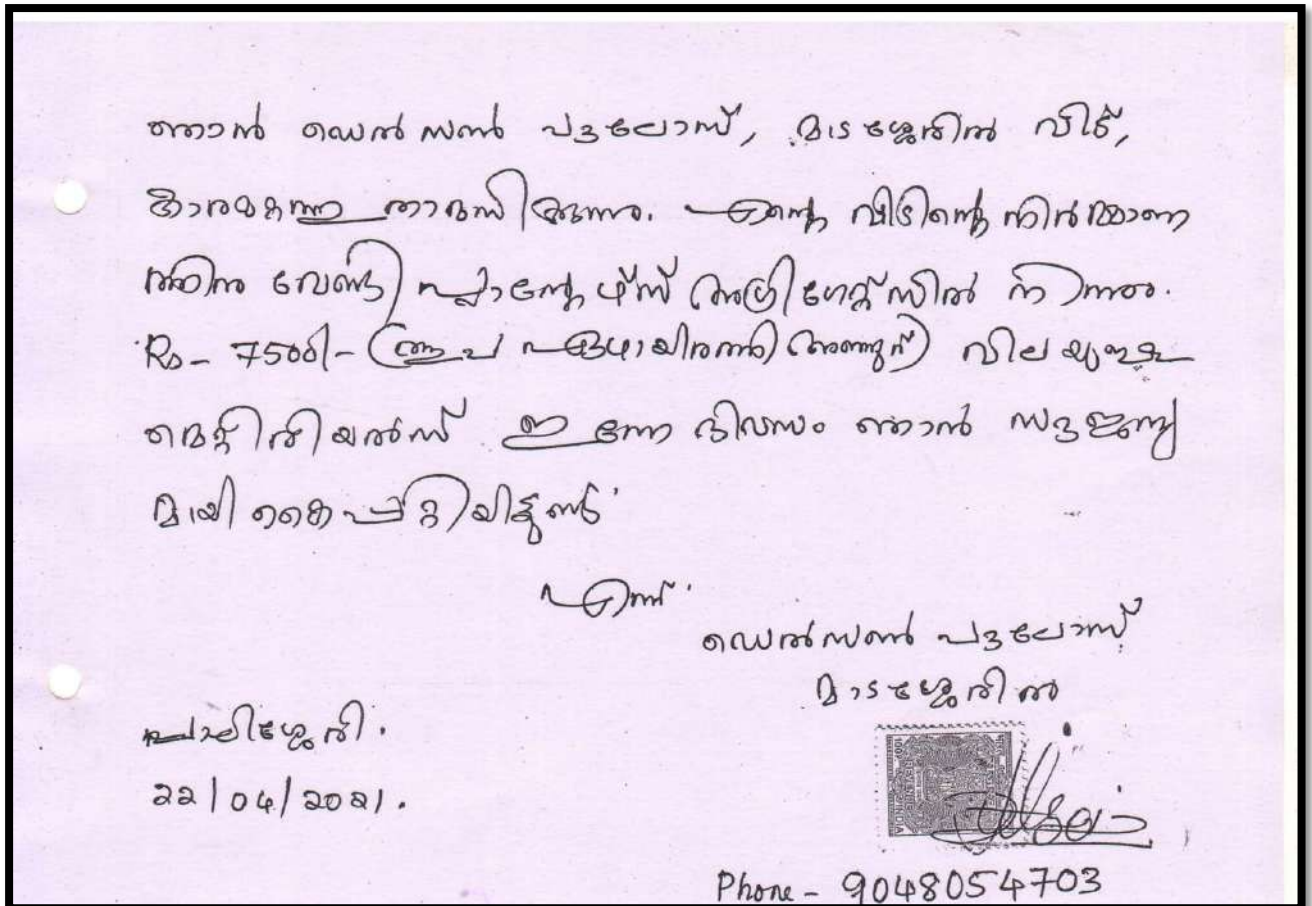 ഞാൻ ഡെൽസൺ പൗലോസ്, മാടശ്ശേരിൽ വീട്,
താമസിക്കുന്നു. എന്റെ വീടിന്റെ നിർമ്മാണ
ത്തിനു വേണ്ടി അഗ്രിഗേറ്റ്സിൽ നിന്നും
Rs- 7500/- (രൂപ ഏഴായിരത്തി അഞ്ഞൂറ്) വിലയുള്ള
മെറ്റീരിയൽസ് ഇന്നേ ദിവസം ഞാൻ സൗജന്യ
മായി കൈപ്പറ്റിയിട്ടുണ്ട്
എന്ന്
ഡെൽസൺ പൗലോസ്
മാടശ്ശേരിൽ
പാലിശ്ശേരി.
22/04/2021.
Phone - 9048054703